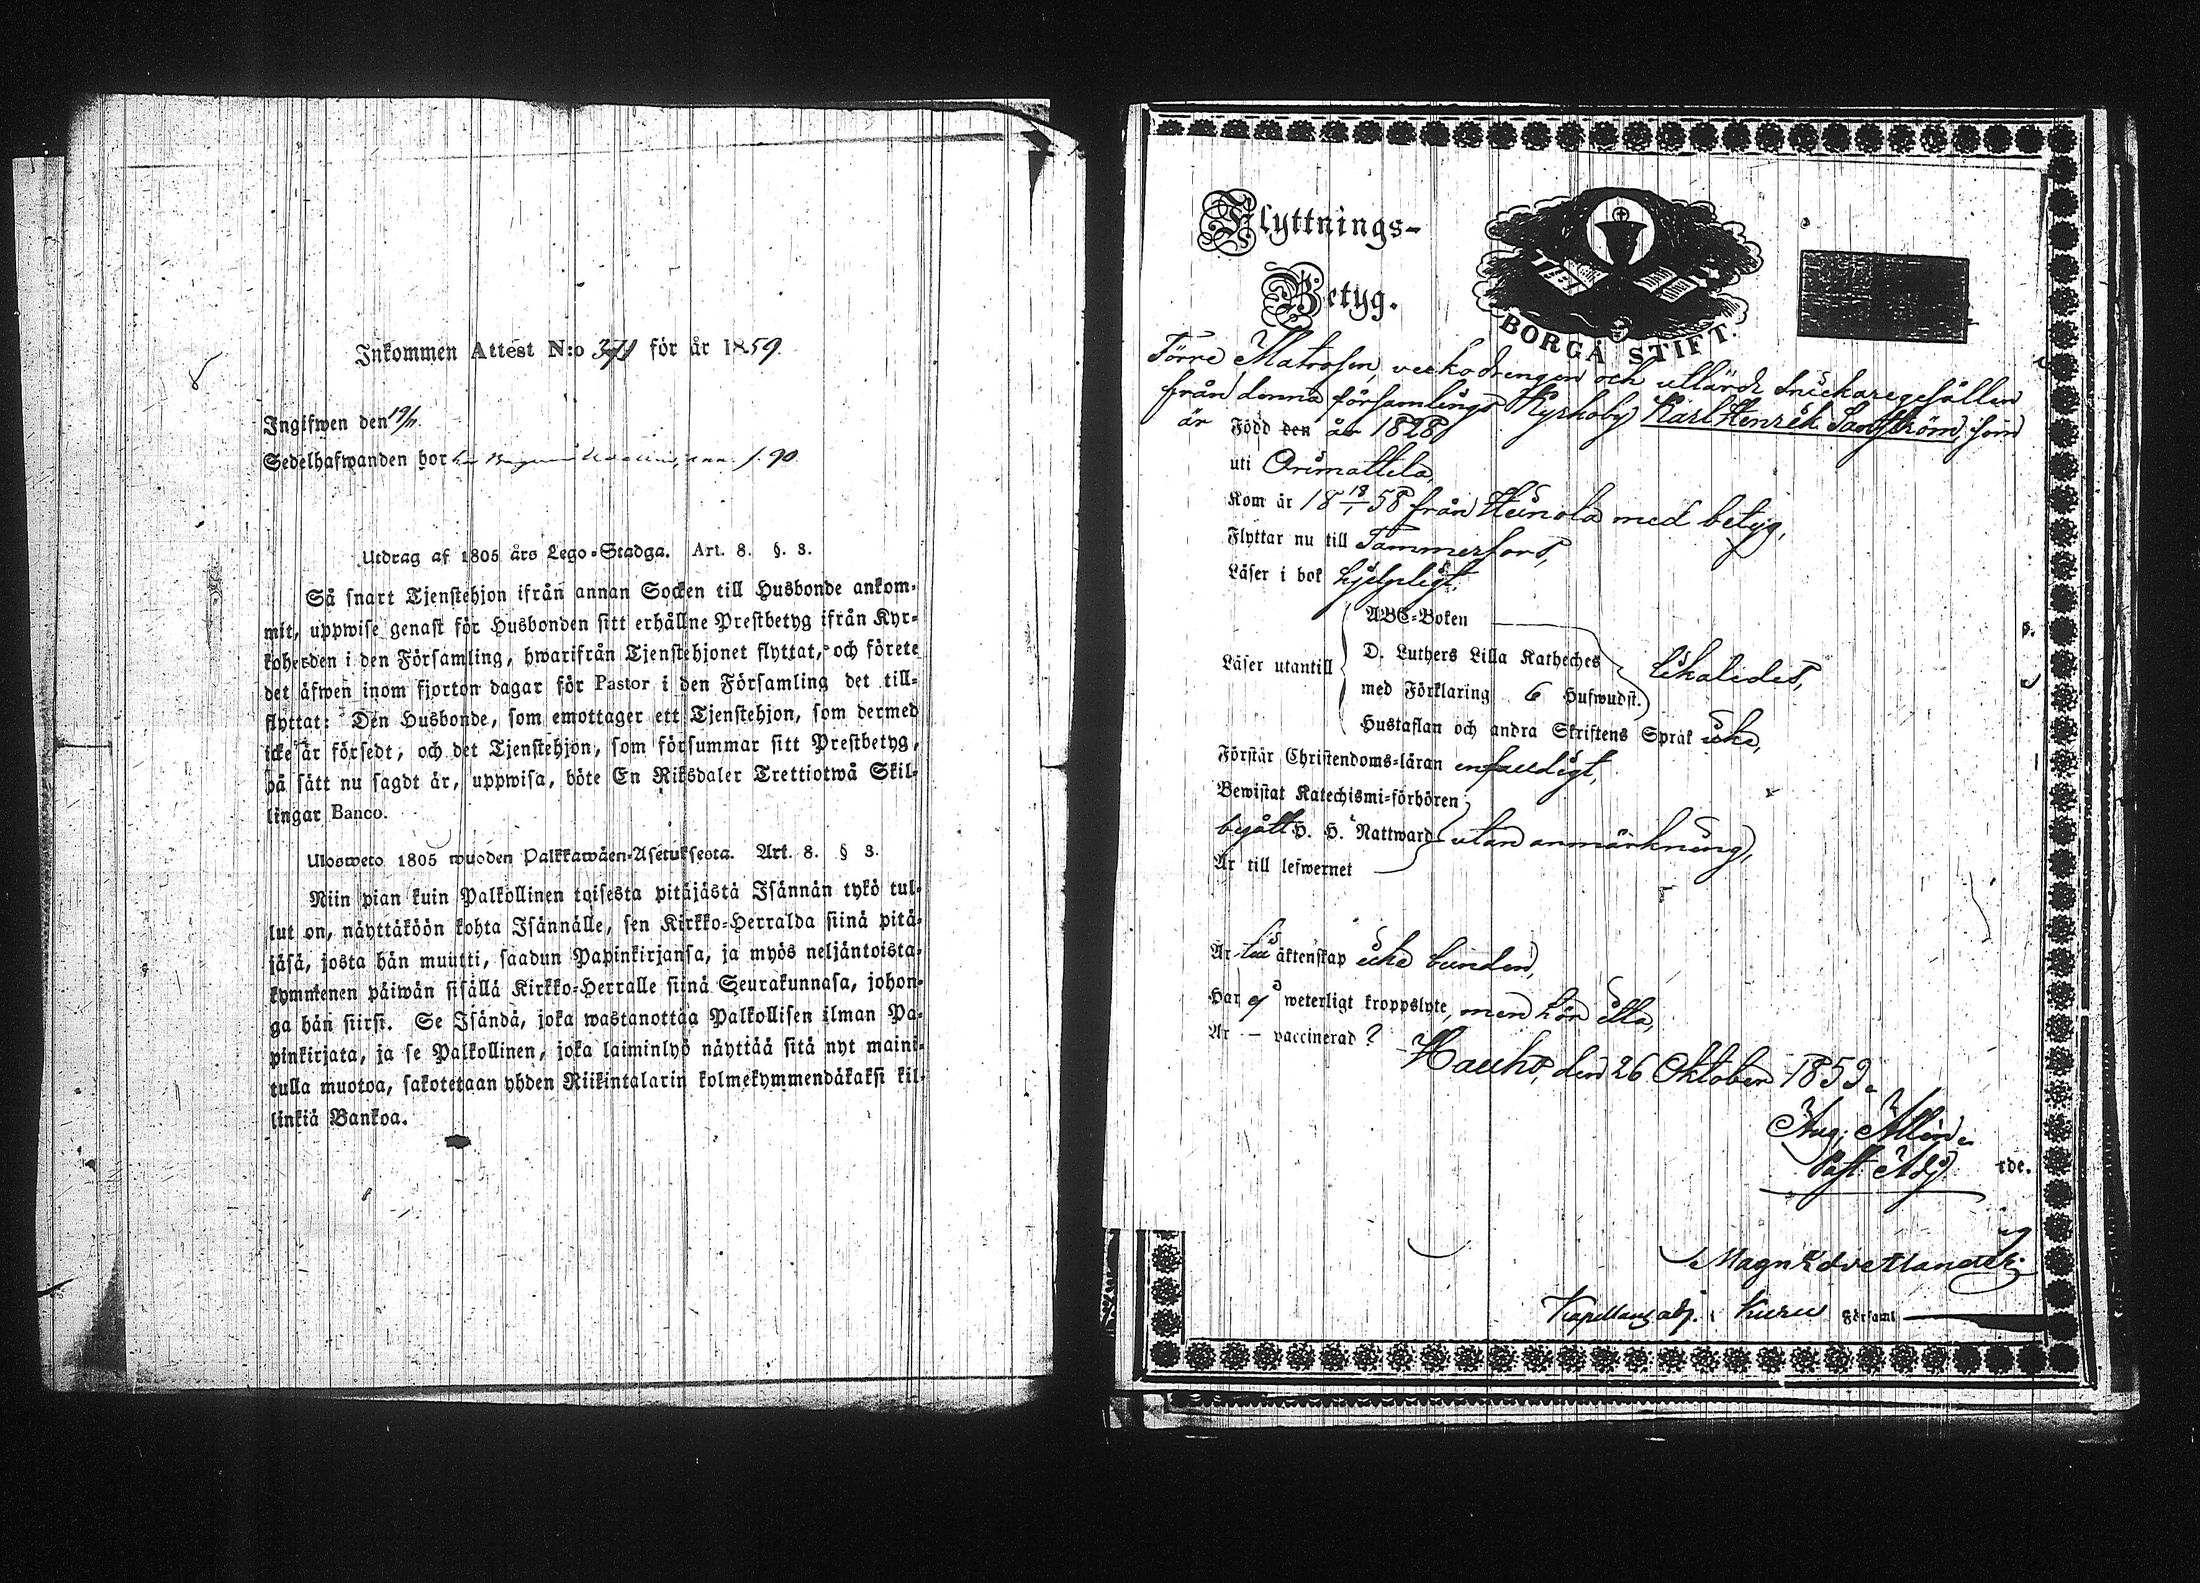 Inkommen Attest N:o 371 för år 1859.
Ingifwen den 19/11.
Sedelhafwanden bor
Utdrag af 1805 års Lego-Stadga. Art. 8. §. 3.
Så snart Tjenstehjon ifrån annan Socken till Husbonde ankom-
mit, uppwise genast för Husbonden sitt erhållne Prestbetyg ifrån Kyr-
koherden i den Församling, hwarifrån Tjenstehjonet flyttat, och förete
det äfwen inom fjorton dagar för Pastor i den Församling det till-
flyttat: Den Husbonde, som emottager ett Tjenstehjon, som dermed
icke är försedt, och det Tjenstehjon, som försummar sitt Prestbetyg,
på sätt nu sagdt är, uppwisa, böte En Riksdaler Trettiotwå Skil-
lingar Banco.
Ulosweto 1805 wuoden Palkkawäen-Asetuksesta. Art. 8. § 3.
Niin pian kuin Palkollinen toisesta pitäjästä Isännän tykö tul-
lut on, näyttäköön kohta Isännälle, sen Kirkko-Herralda siinä pitä-
jäsä, josta hän muutti, saadun Papinkirjansa, ja myös neljäntoista-
kymmenen päiwän sisällä Kirkko-Herralle siinä Seurakunnasa, johon-
ga hän siirsi. Se Isändä, joka wastanottaa Palkollisen ilman Pa-
pinkirjata, ja se Palkollinen, joka laiminlyö näyttää sitä nyt maini-
tulla muotoa, sakotetaan yhden Riikintalarin kolmekymmendäkaksi kil-
linkiä Bankoa.
Flyttnings-
Betyg.
BORGÅ STIFT.
Förre Matrosen, och utlärde snickaregesällen
från denna församlings Kyrkoby Karl Henrik Sandström, som
är Född den år 1828
uti Orimattila,
Kom år 18 18/1 58 från Heinola med betyg,
Flyttar nu till Tammerfors,
Läser i bok hjelpligt,
ABC-Boken
Läser utantill D. Luthers Lilla Katheches
med Förklaring 6 Hufwudst.
Hustaflan och andra Skriftens Språk icke,
Förstår Christendoms-läran enfaldigt,
Bewistat Katechismi-förhören
begått H. H. Nattward utan anmärkning,
Är till lefwernet
Är till äktenskap icke bunden,
Har ej weterligt kroppslyte, men hör illa,
Är — vaccinerad?
Hauho, den 26 Oktober 1859.
Aug. Allén.
Past. Adj. rde.
Kapellans adj. i Kuru Församl